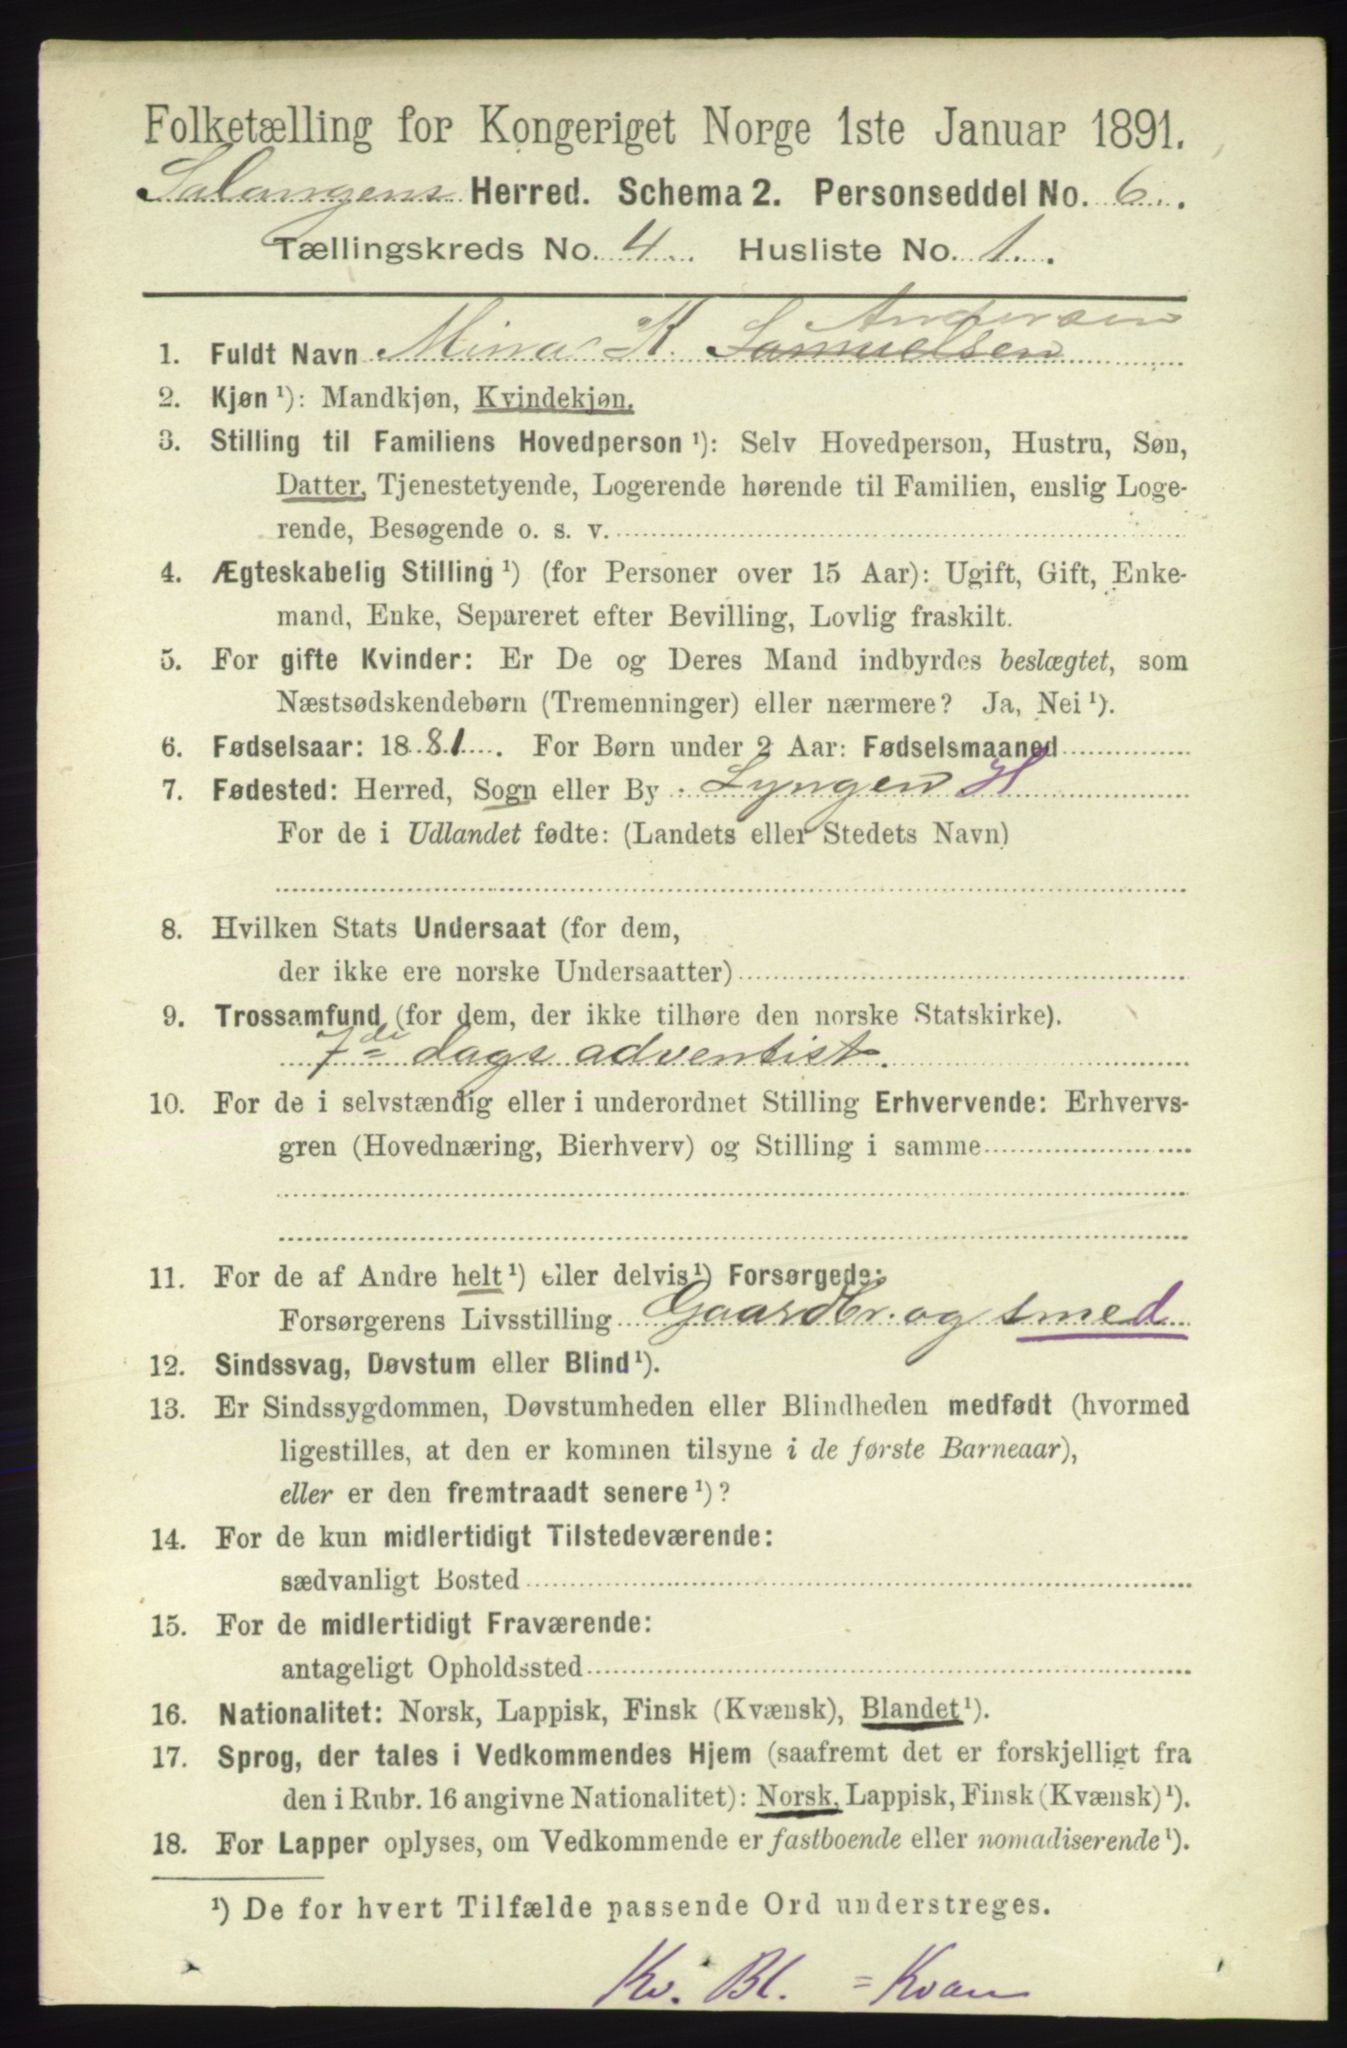 Folketælling for Kongeriget Norge 1ste Januar 1891.
Salangens Herred. Schema 2. Personseddel No. 6.
Tællingskreds No. 4 Husliste No. 1.
Andersen
1. Fuldt Navn Mina K. Samuelsen
2. Kjøn ¹): Mandkjøn, Kvindekjøn.
3. Stilling til Familiens Hovedperson ¹): Selv Hovedperson, Hustru, Søn,
Datter, Tjenestetyende, Logerende hørende til Familien, enslig Loge-
rende, Besøgende o. s. v.
4. Ægteskabelig Stilling ¹) (for Personer over 15 Aar): Ugift, Gift, Enke-
mand, Enke, Separeret efter Bevilling, Lovlig fraskilt.
5. For gifte Kvinder: Er De og Deres Mand indbyrdes beslægtet, som
Næstsødskendebørn (Tremenninger) eller nærmere? Ja, Nei ¹).
6. Fødselsaar: 1881. For Børn under 2 Aar: Fødselsmaaned
7. Fødested: Herred, Sogn eller By Lyngen H
For de i Udlandet fødte: (Landets eller Stedets Navn)
8. Hvilken Stats Undersaat (for dem,
der ikke ere norske Undersaatter)
9. Trossamfund (for dem, der ikke tilhøre den norske Statskirke).
7de dags adventist.
10. For de i selvstændig eller i underordnet Stilling Erhvervende: Erhvervs-
gren (Hovednæring, Bierhverv) og Stilling i samme
11. For de af Andre helt ¹) eller delvis ¹) Forsørgede:
Forsørgerens Livsstilling Gaardbr. og smed
12. Sindssvag, Døvstum eller Blind ¹).
13. Er Sindssygdommen, Døvstumheden eller Blindheden medfødt (hvormed
ligestilles, at den er kommen tilsyne i de første Barneaar),
eller er den fremtraadt senere ¹)?
14. For de kun midlertidigt Tilstedeværende:
sædvanligt Bosted
15. For de midlertidigt Fraværende:
antageligt Opholdssted
16. Nationalitet: Norsk, Lappisk, Finsk (Kvænsk), Blandet ¹).
17. Sprog, der tales i Vedkommendes Hjem (saafremt det er forskjelligt fra
den i Rubr. 16 angivne Nationalitet): Norsk, Lappisk, Finsk (Kvænsk) ¹).
18. For Lapper oplyses, om Vedkommende er fastboende eller nomadiserende ¹).
¹) De for hvert Tilfælde passende Ord understreges.
Kv. Bl. = Kvæn